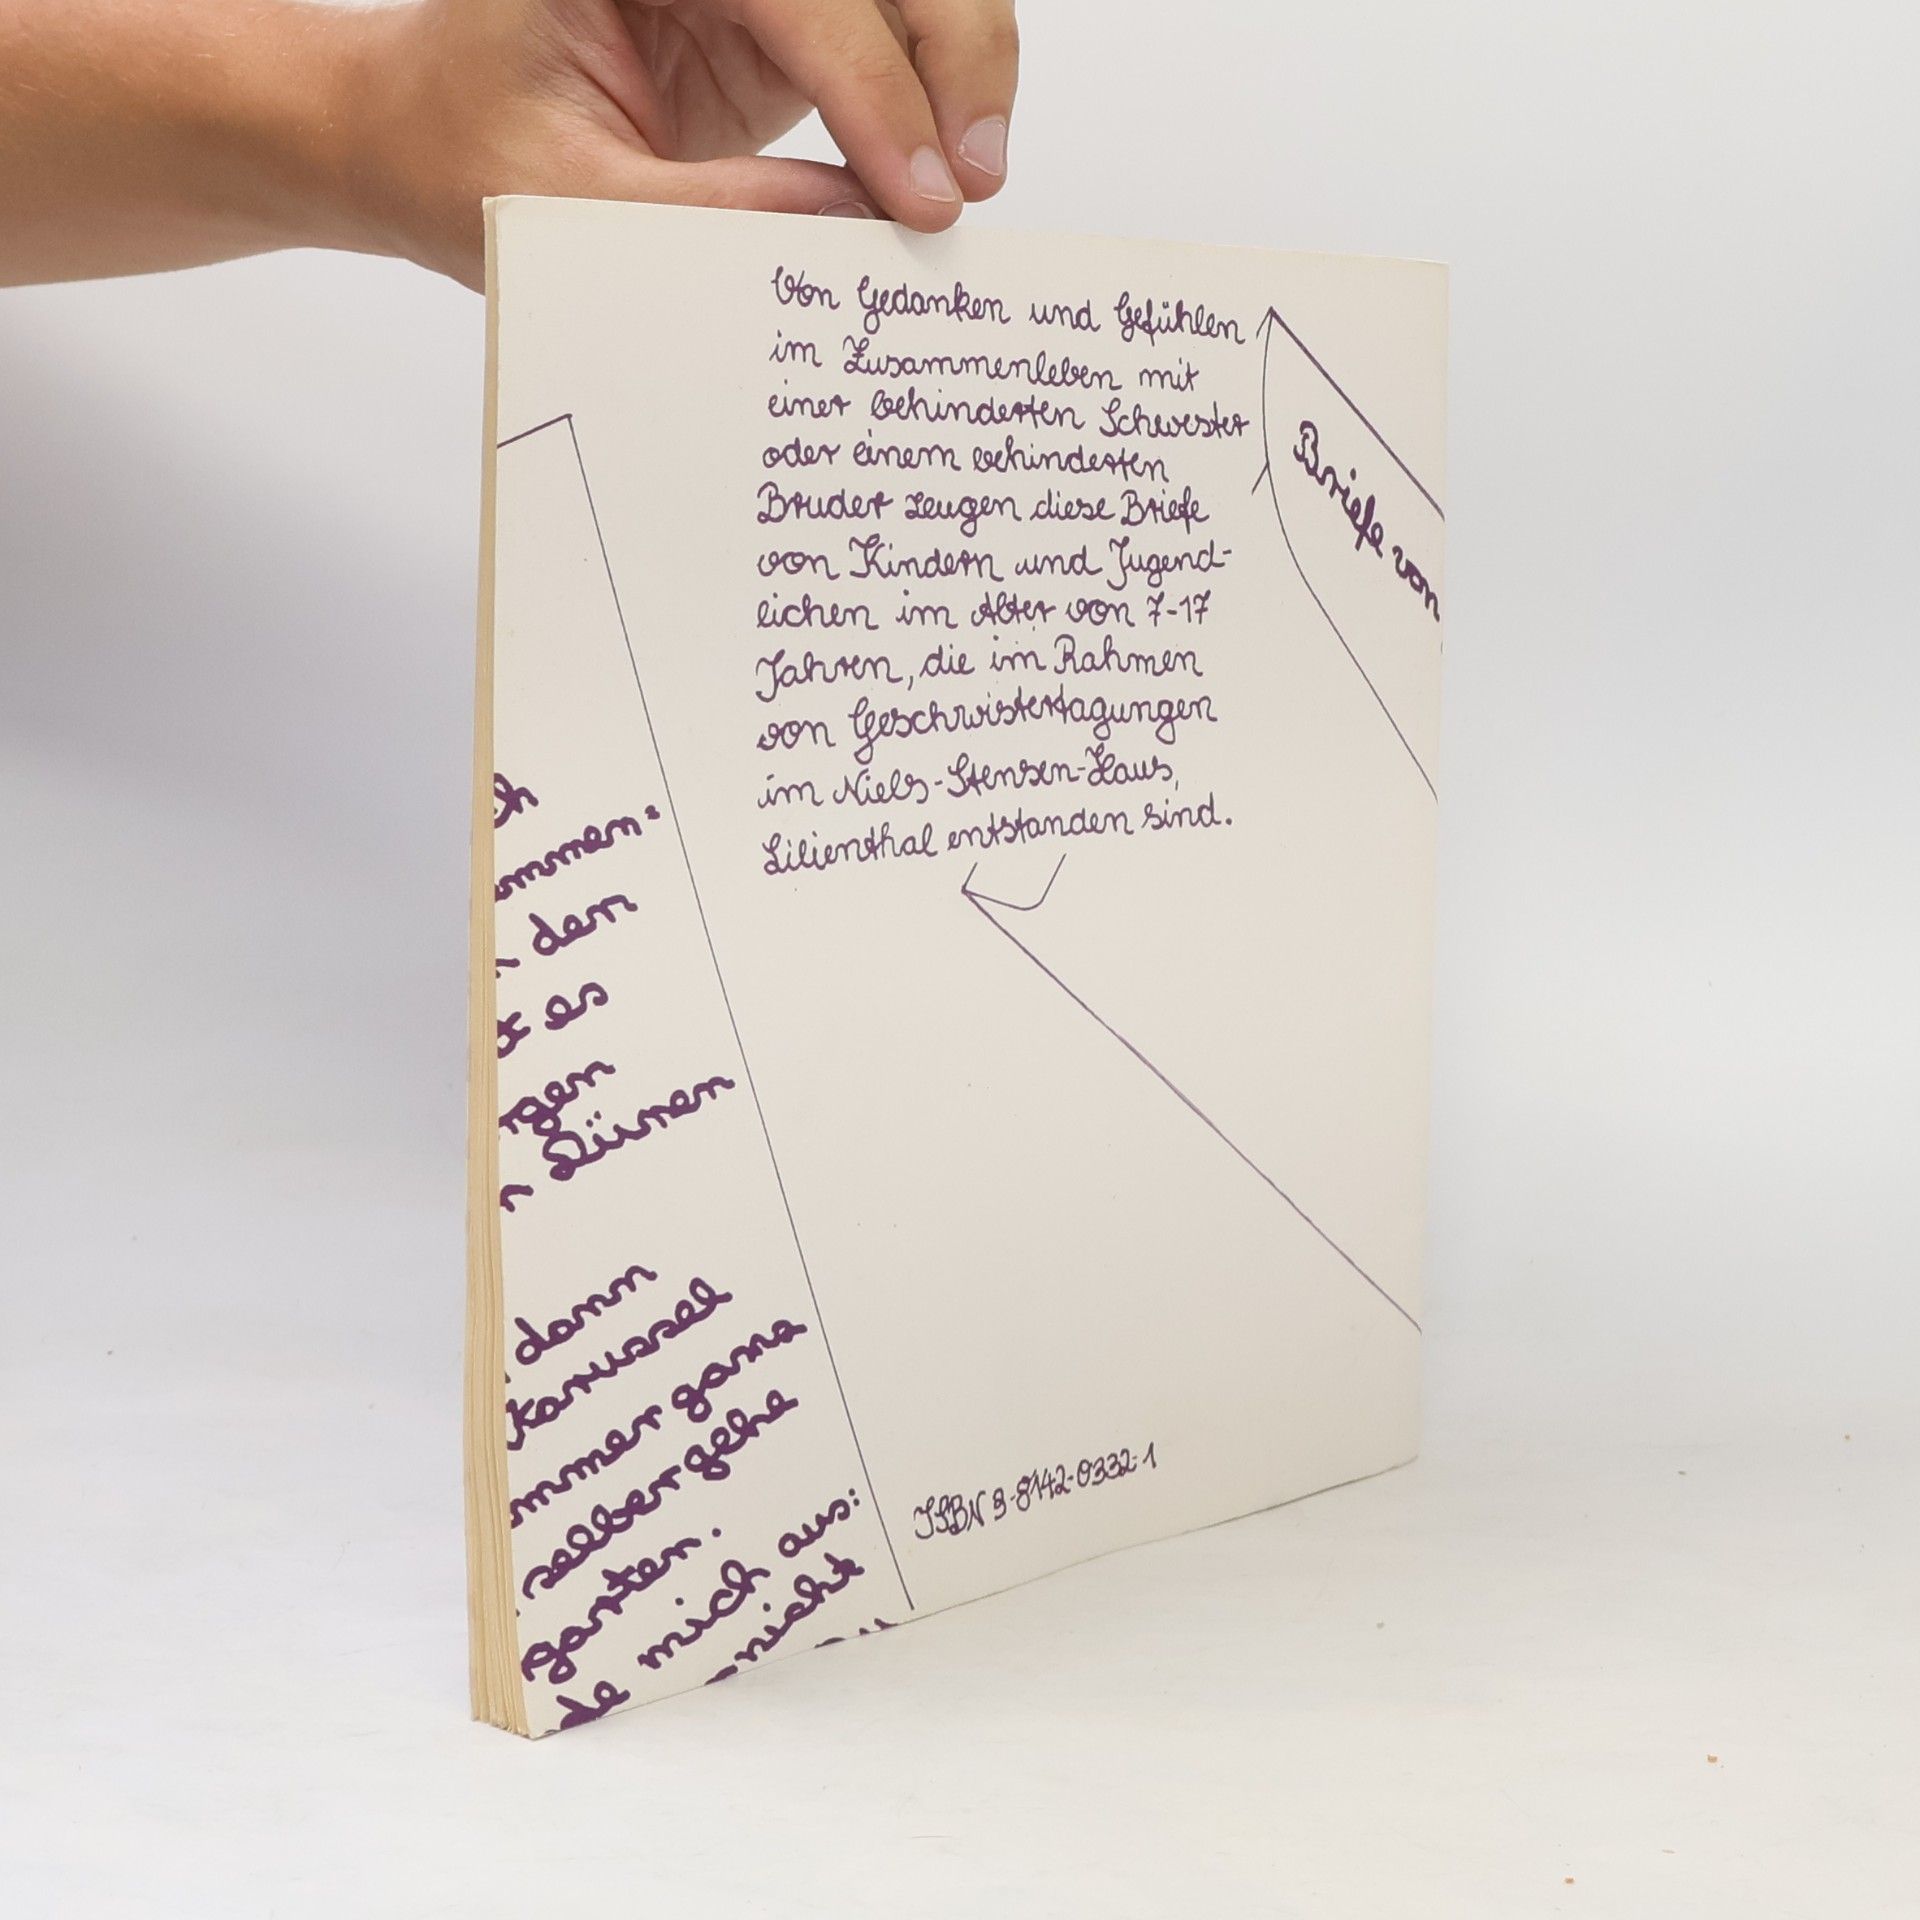 Von Gedanken und Gefühlen
im Zusammenleben mit
einer behinderten Schwester
oder einem behinderten
Bruder zeugen diese Briefe
von Kindern und Jugend-
lichen im Alter von 7-17
Jahren, die im Rahmen
von Geschwistertagungen
im Niels-Stensen-Haus,
Lilienthal entstanden sind.
Briefe von
ch
ammen-
dem
es
gen
Dünen
dann
karussel
mmer ganz
selber gehe
garten.
de mich aus:
nicht
ISBN 3-8142-0332-1